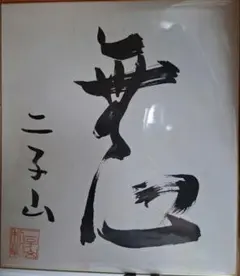 無心
二子山